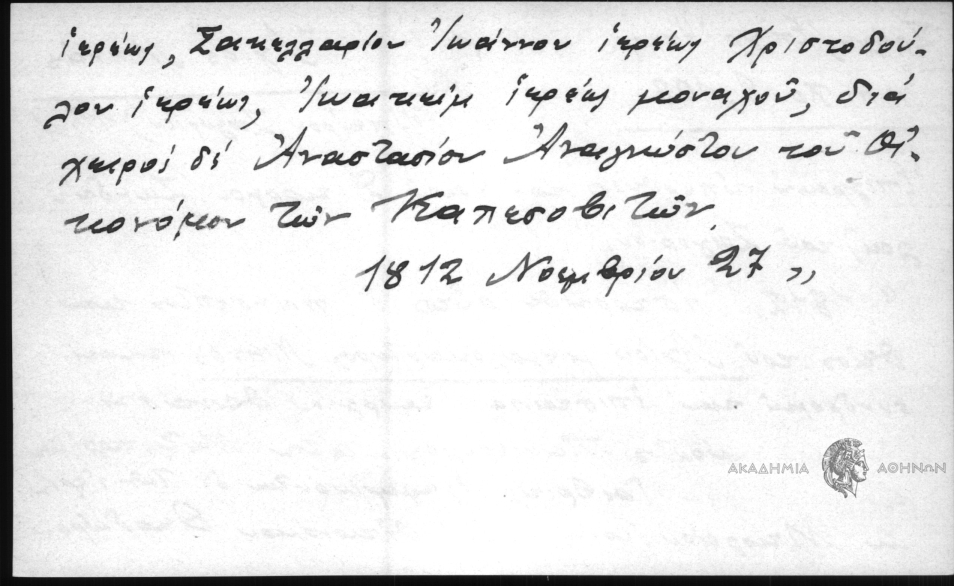 ἱερέως, Σακελλαρίου Ἰωάννου ἱερέως Χριστοδού-
λου ἱερέως, Ἰωακεὶμ ἱερέως μοναχοῦ, διά
χειρός δέ Ἀναστασίου Ἀναγνώστου τοῦ Οἰ-
κονόμου τῶν Καπεσοβιτῶν
1812 Νοεμβρίου 27 "
ΑΚΑΔΗΜΙΑ ΑΘΗΝΩΝ